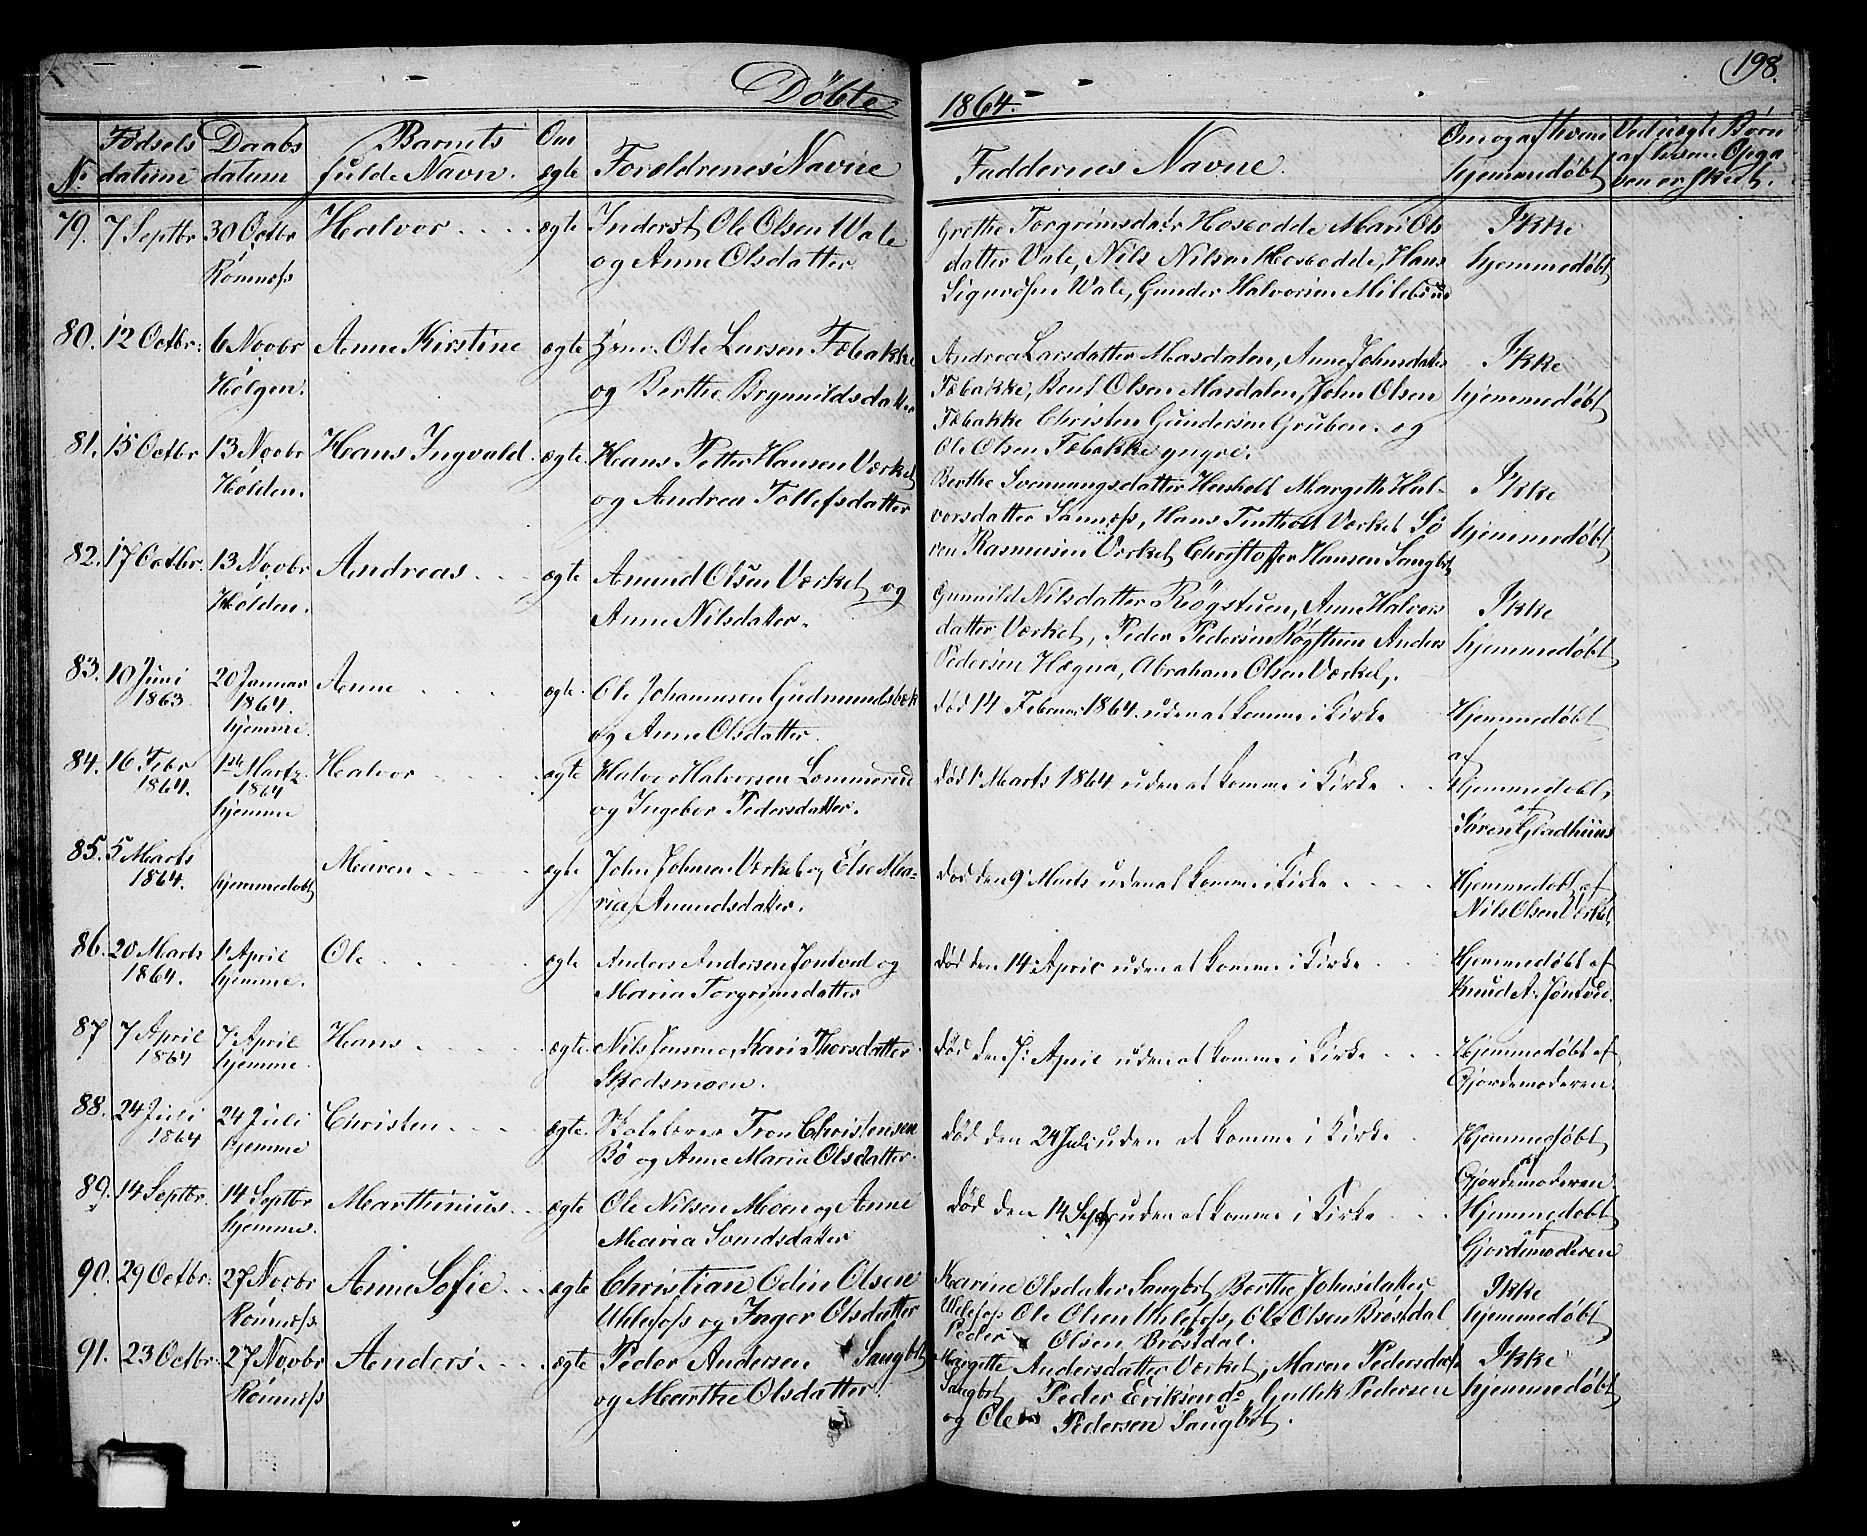 Döbte 1864.
198.
No. Födsels datum Daabs datum Barnets fulde Navn. Om ægte Forældrenes Navne Faddernes Navne. Om og af hvem hjemmedøbt Ved uægte Børn af hvem Opgaven er skeet.
79. 7 Septbr 30 Octbr Halvor ægte Inderst Ole Olsen Wale
Rømnæss og Anne Olsdatter
Grethe Torgrimsdatter Mari Ols
datter Vale, Nils Nilsen Hans
Sigurdsen Wale, Gunder Halvorsen
Ikke
hjemmedøbt
80. 12 Octbr: 6 Novbr Anne Kirstine ægte Ole Larsen Fæbakke
Holden. og Berthe Brynnildsdatter
Andrea Larsdatter Masdalen, Anne Johnsdatter
Fæbakke, Bent Olsen Masdalen, John Olsen
Fæbakke Christen Gundersen Gruben. og
Ole Olsen Fæbakke yngre.
Ikke
hjemmedøbt
81. 15 Octbr 13 Novbr Hans Ingvald ægte. Hans Petter Hansen Værket
Holden. og Andrea Tollefsdatter
Berthe Margithe Hal-
vorsdatter Sannæss, Hans Værket Sö
ren Rasmusen Værket Christoffer Hansen Saugbot
Ikke
hjemmedøbt
82. 17 Octbr. 13 Novbr Andreas ægte Amund Olsen Værket og
Holden. Anne Nilsdatter.
Gunnild Nilsdatter Røgstuen, Anne Halvors
datter Værket, Peder Pedersen Anders
Pedersen Hægna, Abraham Olsen Værket,.
Ikke
hjemmedøbt
83. 10 Juni 20 Januar Anne ægte. Ole Johannesen Gudmundsbæk
1863 1864. og Anne Olsdatter.
hjemme.
død 14 Februar 1864. uden at komme i Kirke Hjemmedøbt
84. 16 Febr 1ste Marts Halvor ægte Halvor Halvorsen Lommerud
1864. 1864 og Ingebor Pedersdatter.
hjemme
død 1. Marts 1864 uden at komme i Kirke
Hjemmedøbt
af
Sören Gladhuus
85. 5 Marts Maren ægte John Johnsen Værket og Else Ma-
1864. hjemmedøbt ria Amundsdatter.
død den 9. Marts uden at komme i Kirke
Hjemmedøbt af
Nils Olsen Værket.
86. 20 Marts 1. April Ole ægte Anders Andersen Jontved og
1864. hjemme. Maria Torgrimsdatter
død den 14. April uden at komme i Kirke
Hjemmedøbt af
Knud A.
87 7 April 7. April Hans ægte Nils Jensen og Kari Thorsdatter
1864 hjemme. Skedsmoen.
død den 7: April uden at komme i Kirke
Hjemmedøbt af
Gjordemoderen.
88. 24 Juli 24 Juli Christen ægte. Skolelærer Tron Christensen
1864 hjemme Bö og Anne Maria Olsdatter.
død den 24 Juli uden at komme i Kirke
Hjemmedøbt
af
Gjordemoderen.
89. 14 Septbr. 14 Septbr Marthinius ægte Ole Nilsen Moen og Anne
hjemme. Maria Svendsdatter
død den 14 Sept uden at komme i Kirke
Hjemmedøbt
af
Gjordemoderen
90. 29 Octbr. 27 Novbr Anne Sofie ægte Christian Odin Olsen
Rømnæss. Uhlefoss og Inger Olsdatter
Karine Olsdatter Saugbot, Berthe Johnsdatter
Ulefoss Ole Olsen Uhlefoss, Ole Olsen Bröstdal
Peder Olsen Bröstdal.
Ikke
hjemmedøbt
91. 23 Octbr. 27 Novbr Anders ægte Peder Andersen Saugbot
Rømnæss og Marthe Olsdatter
Margithe Andersdatter Værket, Maren Pedersdatter
Saugbot Peder Eriksen do, Gullik Pedersen
og Ole Pedersen Saugbot.
Ikke
hjemmedøbt